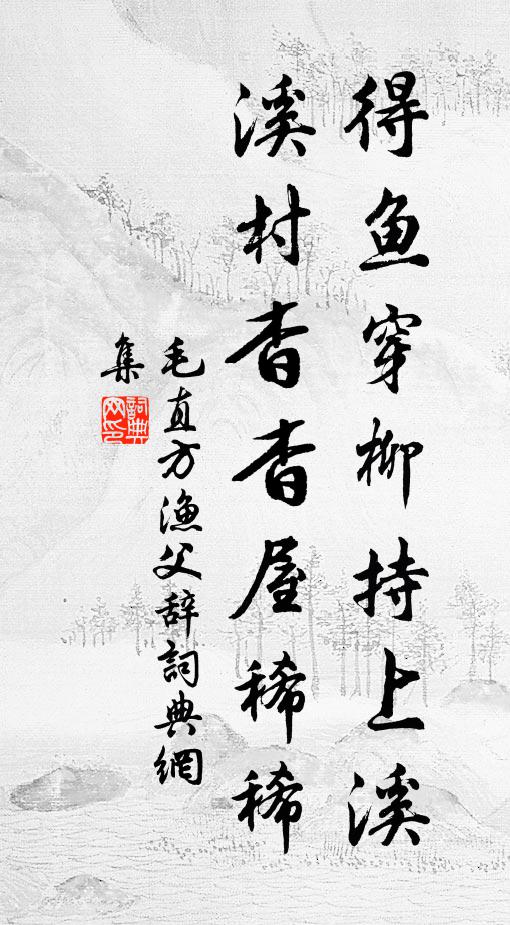 得鱼穿柳持上溪
溪村杳杳屋稀稀
毛直方渔父辞詞典網
集
詞典
网印